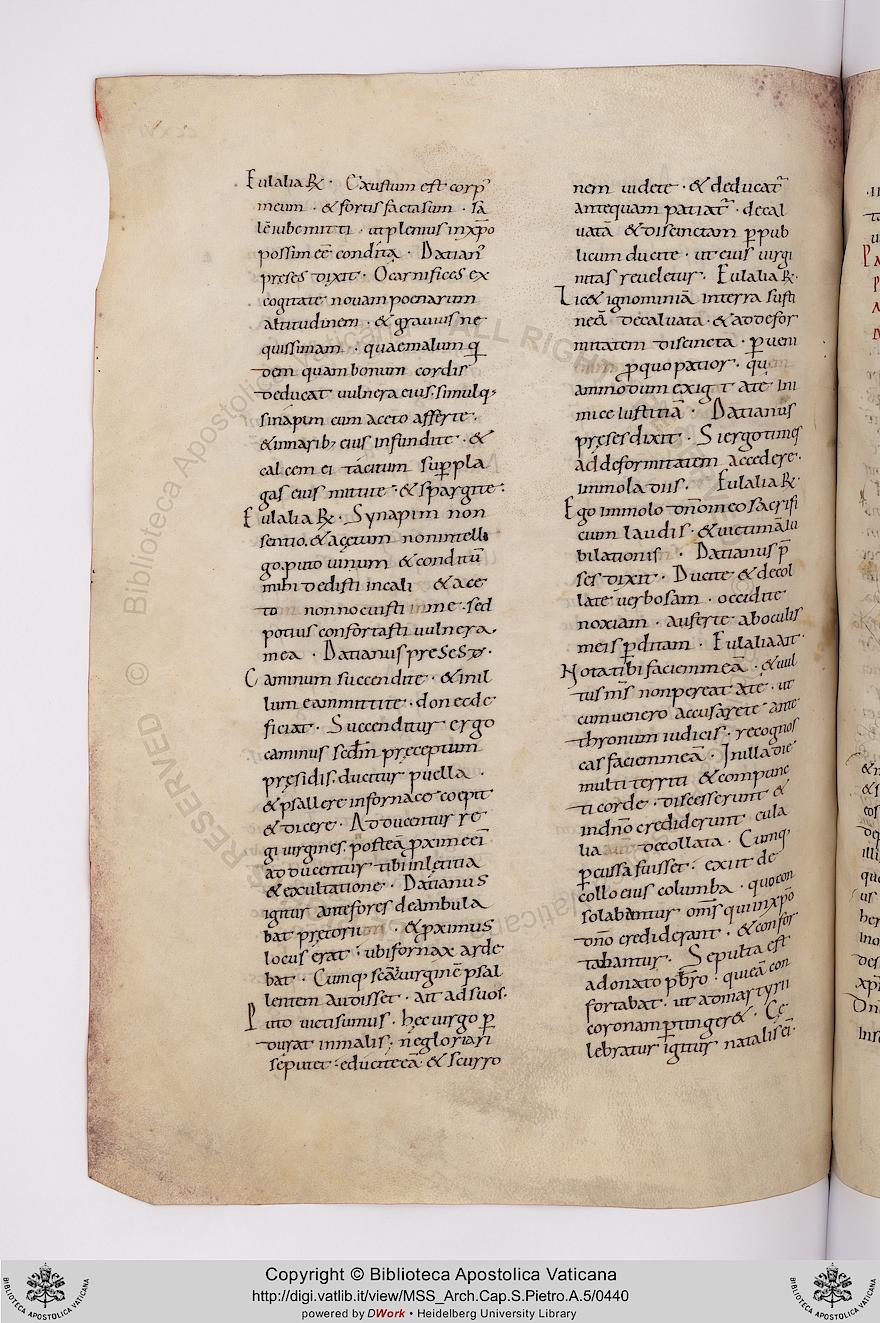 Eulalia R̄. Exustum est corp'
meum · & fortis facta sum · sa
lē iube mitti · ut plenius in xp̄o
possim eē condita · Datian'
preses dixit · O carnifices ex
cogitate novam poenarum
altitudinem · & gravius ne
quissimam · quae malum q̄
dem quam bonum cordis
deducat vulnera eius · simulq;
sinapim cum aceto afferte ·
& in narib; eius infundite · &
calcem ei tacitum sup̄ pla
gas eius mittite · & spargite ·
Eulalia R̄ · Synapim non
sentio · & acetum non intelli
go · puto vinum & conditū
mihi dedisti in cali & ace
to non nocuisti in me · sed
potius confortasti vulnera
mea · Datianus preses dx̄ ·
Caminum succendite · & in il
lum eam mittite · donec de
ficiat · Succenditur ergo
caminus scdm̄ preceptum
presidis · ducitur puella ·
& psallere in fornace coepit
& dicere · Adducentur re
gi virgines postea p̄ximae eī
adducentur tibi in letitia
& exultatione · Datianus
igitur ante fores deambula
bat pretorii · & p̄ximus
locus erat · ubi fornax arde
bat · Cumq; scā virginē psal
lentem audisset · ait ad suos ·
Puto victi sumus · hec virgo p̄
durat in malis · ne gloriari
se putet · educite eā & scurro
nem videte · & deducat̄
antequam patiat̄ · decal
vatā & discinctam p̄ pub
licum ducite · ut eius virgi
nitas reveletur · Eulalia R̄ ·
Lic& ignominiā in terra susti
neā decalvata · & ad defor
mitatem discincta · p̄veni
p̄ quo patior · qu
ammodum exig t a te ini
mice iustitiā · Datianus
preses dixit · Si ergo times
ad deformitatem accedere ·
immola diis · Eulalia R̄ ·
Ego immolo dn̄o meo sacrifi
cium laudis · & victimā iu
bilationis · Datianus p̄
ses dixit · Ducite & decol
late verbosam · occidite
noxiam · auferte ab oculis
meis p̄ditam · Eulalia ait ·
Nota tibi faciem meā · & vul
tus m̄s non pereat a te · ut
cum venero accusare te ante
thronum iudicis · recognos
cas faciem meā · In illa die
multi territi & compunc
ti corde · discesserunt &
in dn̄o crediderunt eula
lia decollata · Cumq;
p̄cussa fuisset · exiit de
collo eius columba · quo con
solabantur om̄s qui in xp̄o
dn̄o crediderant · & confor
tabantur · Sepulta est
a donato pb̄ro · qui eā con
fortabat · ut ad martyrii
coronam p̄tinger& · Ce
lebratur igitur natalis eī ·
Copyright © Biblioteca Apostolica Vaticana
http://digi.vatlib.it/view/MSS_Arch.Cap.S.Pietro.A.5/0440
powered by DWork • Heidelberg University Library